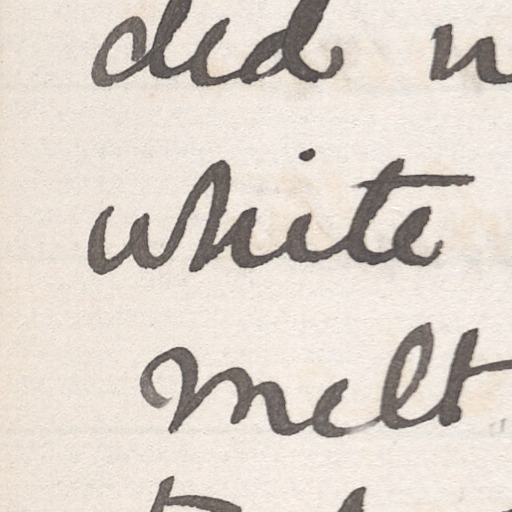 did
white
melt